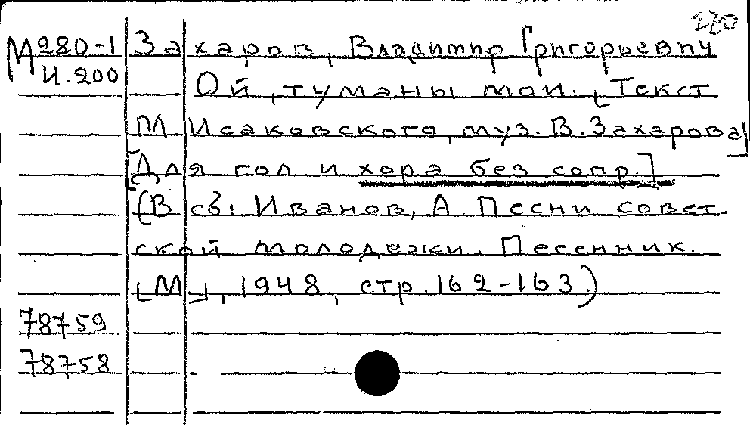 230
М280-1 Захаров, Владимир Григорьевич
И.200 Ой, туманы мои. [Текст
М Исаковского, муз. В. Захарова]
[Для гол и хора без сопр.]
(В сб: Иванов, А Песни совет-
ской молодежи. Песенник.
[М], 1948, стр. 162-163)
78759
78758